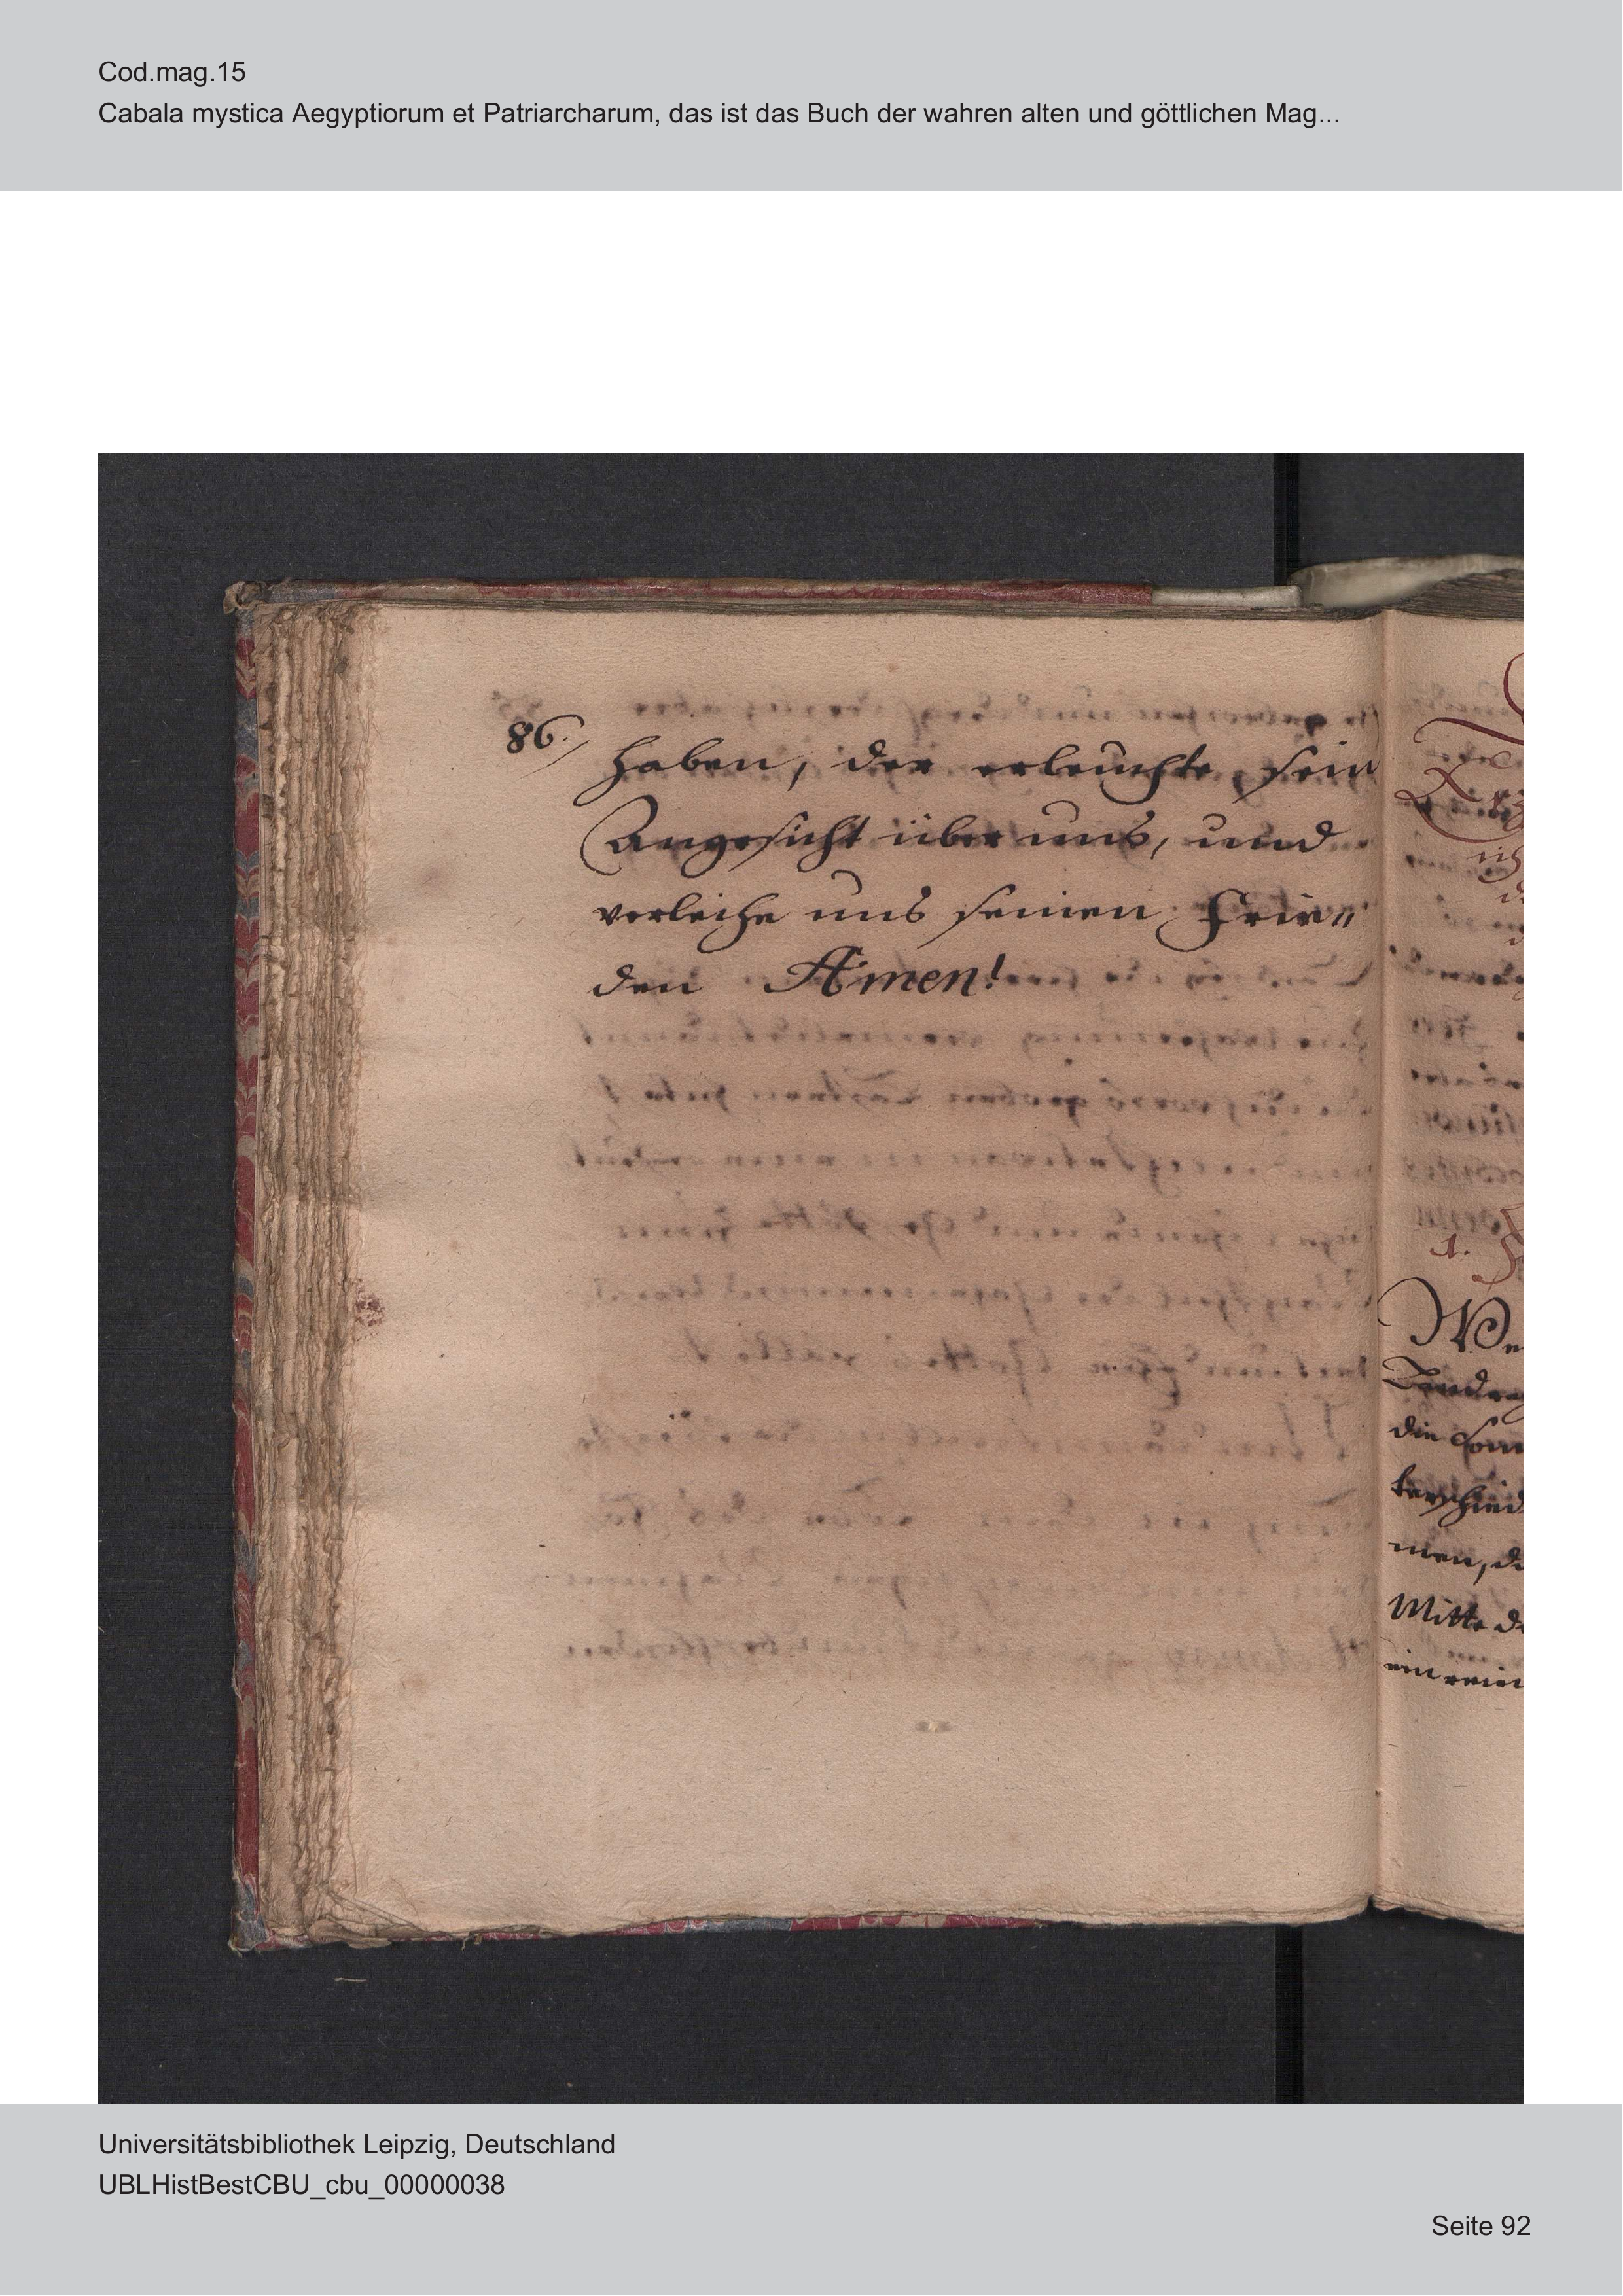 Cod.mag.15
Cabala mystica Aegyptiorum et Patriarcharum, das ist das Buch der wahren alten und göttlichen Mag...
86.
haben, der erleuchte sein
Angesicht über uns, und
verleihe uns seinen Frie"
den Amen!
1.
We
die Son
terschied
men, di
Mitte d
ein rein
Universitätsbibliothek Leipzig, Deutschland
UBLHistBestCBU_cbu_00000038
Seite 92